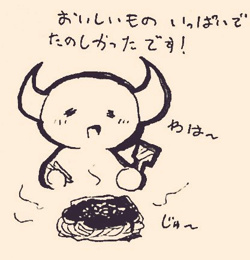 おいしいもの いっぱいで
たのしかったです!
わは〜
じゅ〜